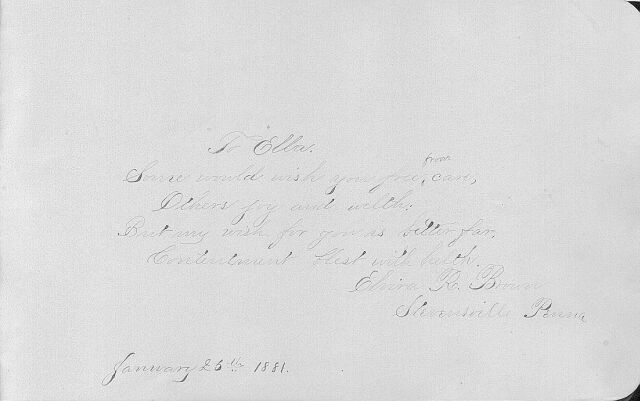 To Ella.
Some would wish you free from care,
Others joy and welth;
But my wish for you is bitter far,
Contentment blest with helth.
Elvira R. Brown
Stevensville Penna
January 25th 1881.